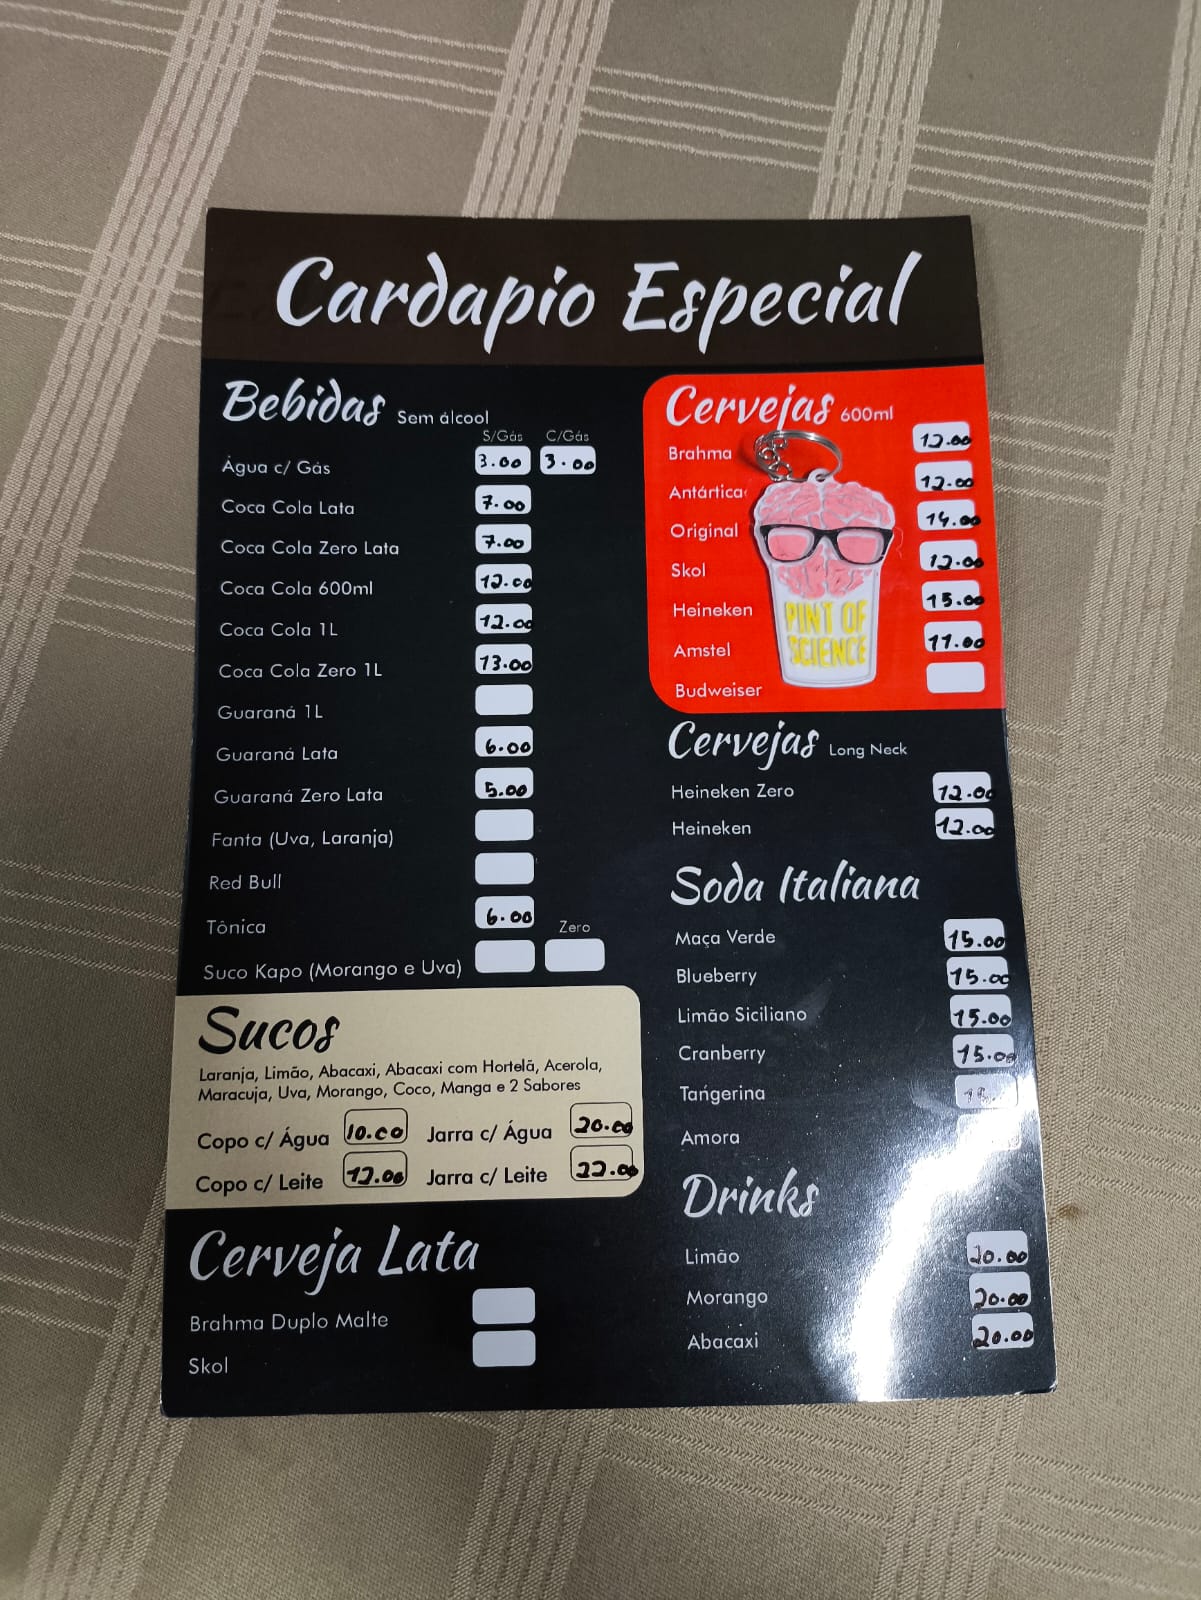 Cardapio Especial
Bebidas Sem álcool
S/Gás C/Gás
Água c/ Gás 3.00 3.00
Coca Cola Lata 7.00
Coca Cola Zero Lata 7.00
Coca Cola 600ml 12.00
Coca Cola 1L 12.00
Coca Cola Zero 1L 13.00
Guaraná 1L
Guaraná Lata 6.00
Guaraná Zero Lata 5.00
Fanta (Uva, Laranja)
Red Bull
Tônica 6.00
Zero
Suco Kapo (Morango e Uva)
Sucos
Laranja, Limão, Abacaxi, Abacaxi com Hortelã, Acerola,
Maracuja, Uva, Morango, Coco, Manga e 2 Sabores
Copo c/ Água 10.00 Jarra c/ Água 20.00
Copo c/ Leite 12.00 Jarra c/ Leite 22.00
Cerveja Lata
Brahma Duplo Malte
Skol
Cervejas 600ml
Brahma 12.00
Antártica 12.00
Original 14.00
Skol 12.00
Heineken 15.00
Amstel 11.00
Budweiser
PINT OF
SCIENCE
Cervejas Long Neck
Heineken Zero 12.00
Heineken 12.00
Soda Italiana
Maça Verde 15.00
Blueberry 15.00
Limão Siciliano 15.00
Cranberry 15.00
Tangerina
Amora
Drinks
Limão 20.00
Morango 20.00
Abacaxi 20.00